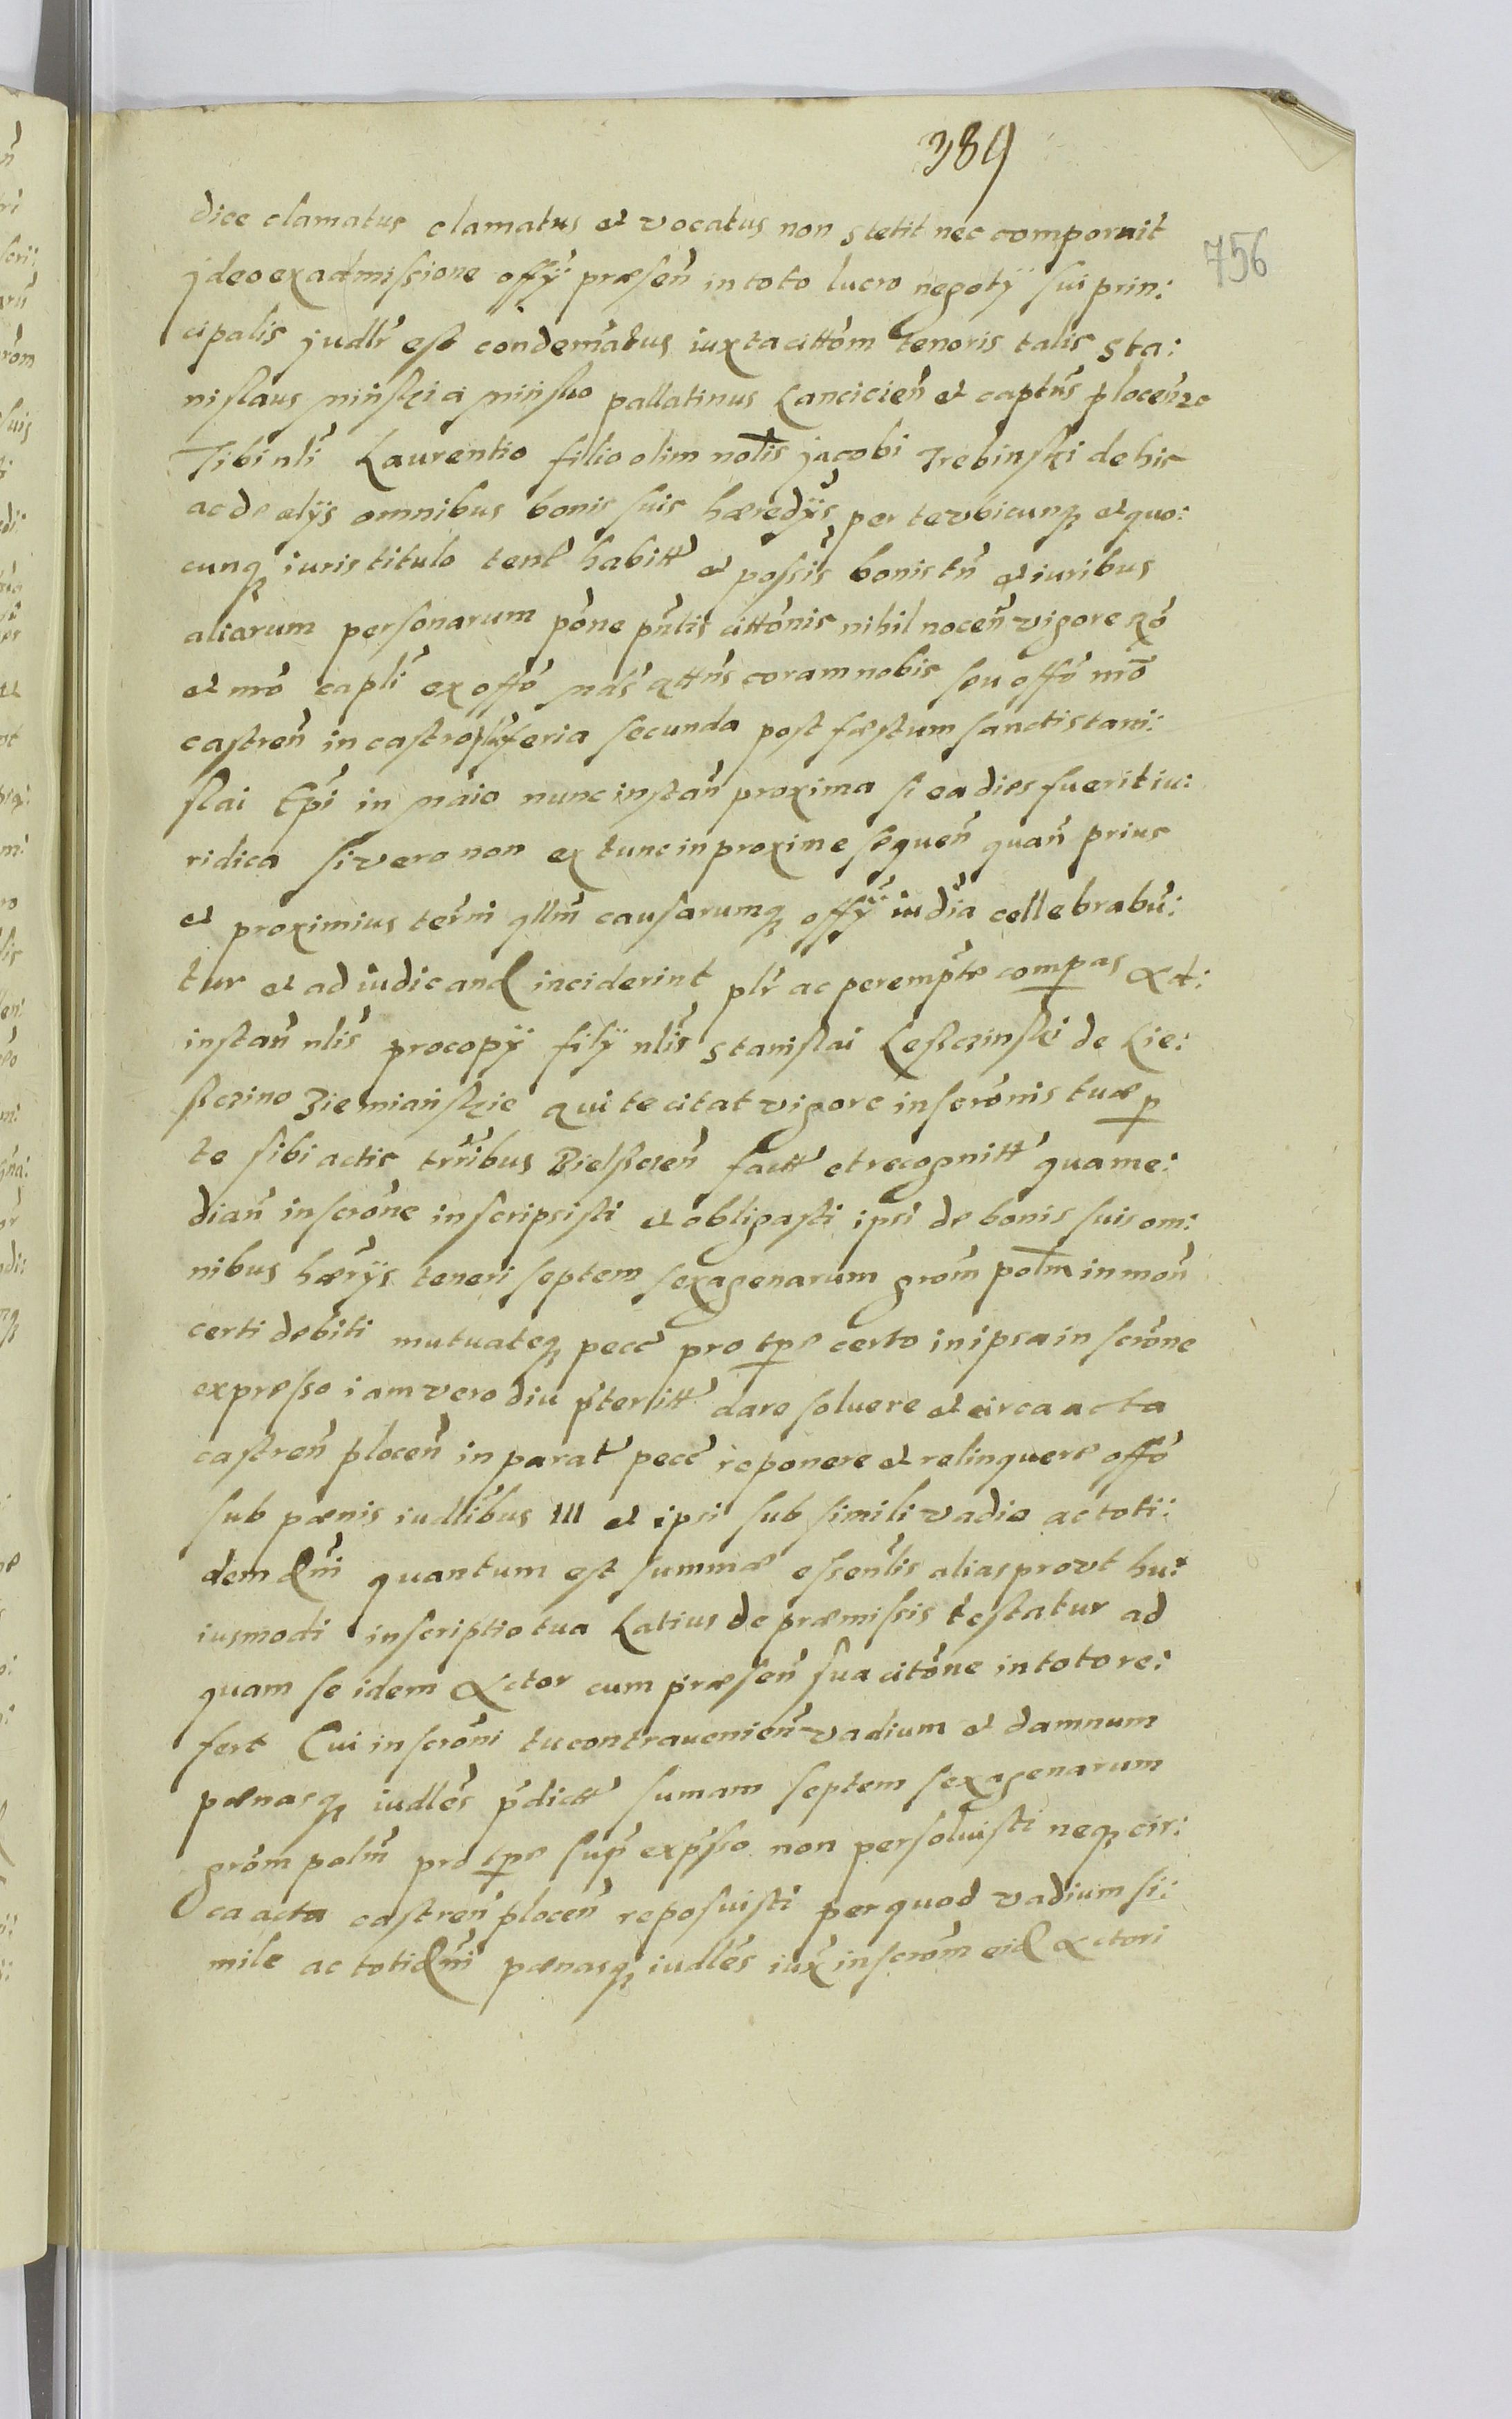 389
756
dice clamatus clamatus et vocatus non stetit nec comporuit
jdeo ex admissione offÿ præsen̄ in toto lucro negotÿ sui prin:
cipalis judlr̄ est condem̄atus iuxta cittōm tenoris talis Sta:
nislaus Minski a Minsko pallatinus Lancicien̄ et captn̄s plocen̄
Tibi nli̅ Laurentio filio olim nolis jacobi Trebinski de his
ac de alÿs omnibus bonis suis hæredÿs per te vbicunq et quo:
cunq iuris titulo tent̄ habitt̄ et possis̄ bonis tn̄ et iuribus
aliarum personarum pōne pn̄tis cittōnis nihil nocen̄ vigore Rō
et mrō capli̅ ex offō coram nobis seu offō mō
castren̄ in castro feria secunda post fæstum sancti stani:
slai Epi̅ in Maio nunc instan̄ proxima si ea dies fuerit iu:
ridica si vero non ex tunc in proxime sequen̄ quan̄ prius
et proximius term̄ qllm̄ causarumq offÿ iudīa cellebrabū:
tur et ad iudicand inciderint plr̄ ac perempte compas Ad:
instan̄ nlis̄ procopÿ filÿ nlis̄ Stanislai Leszczinski de Lie:
szczino Ziemianskie qui te citat vigore inscrōnis tuæ p
te sibi actis trr̄ibus Bielszczen̄ factt̄ et recognitt̄ qua me:
dian̄ inscrōne inscripsisti et obligasti ipsi de bonis suis om:
nibus hærÿs teneri septem sexagenarum grōm polm̄ in mon̄
certi debiti mutuateq pecc̄ pro tpe certo in ipsa inscrōne
expresso iam vero diu p̄terlitt̄ dare soluere et circa acta
castren̄ plocen̄ in parat̄ pecc̄ reponere et relinquere offō
sub pænis iudlībus III et ipsi sub simili vadio ac toti:
dem dm̄ quantum est summæ essen̄lis alias prout hu:
iusmodi inscriptio tua Latius de præmissis testatur ad
quam se idem Actor cum præsen̄ sua citōne in toto re:
fert Cui inscrōni tu contrauenien̄ vadium et damnum
pænasq iudlēs p̄dictt̄ sumam septem sexagenarum
grōm polm̄ pro tpe sup̄ exp̄sso non persoluisti neq cir:
ca acta castren̄ plocen̄ reposuisti per quod vadium si:
mile ac totidm̄ pænasq iudlēs iux̄ inscrōm eid Actori